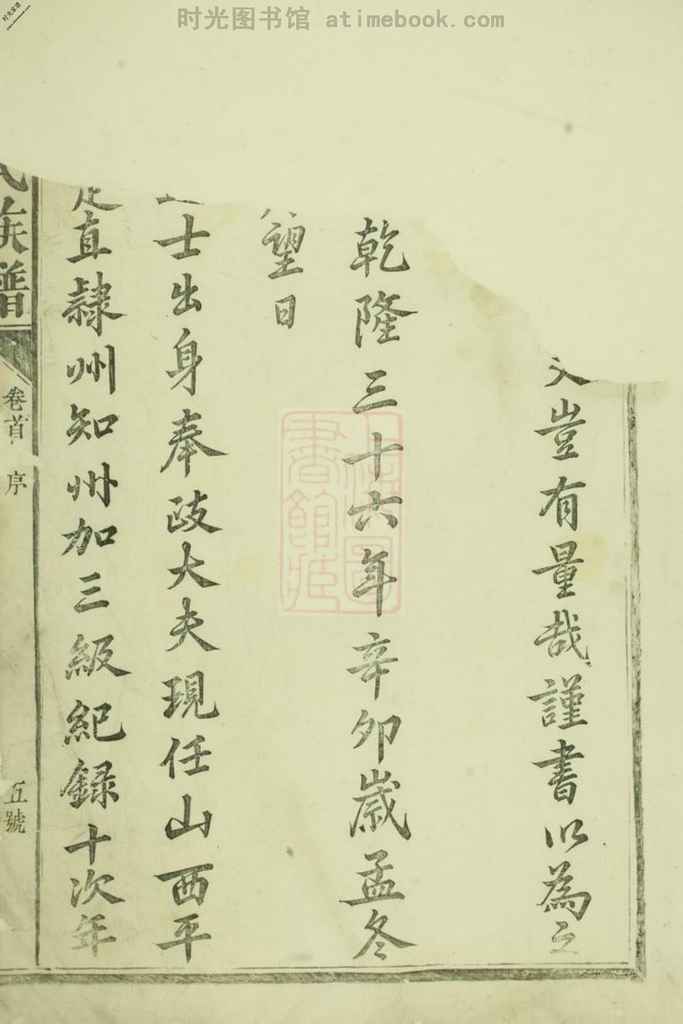 时光图书馆 atimebook.com
豈有量哉謹書以為之
乾隆三十六年辛夘歲孟冬
望日
士出身奉政大夫現任山西平
定直隸州知州加三級紀録十次年
氏族譜
卷首 序
五號